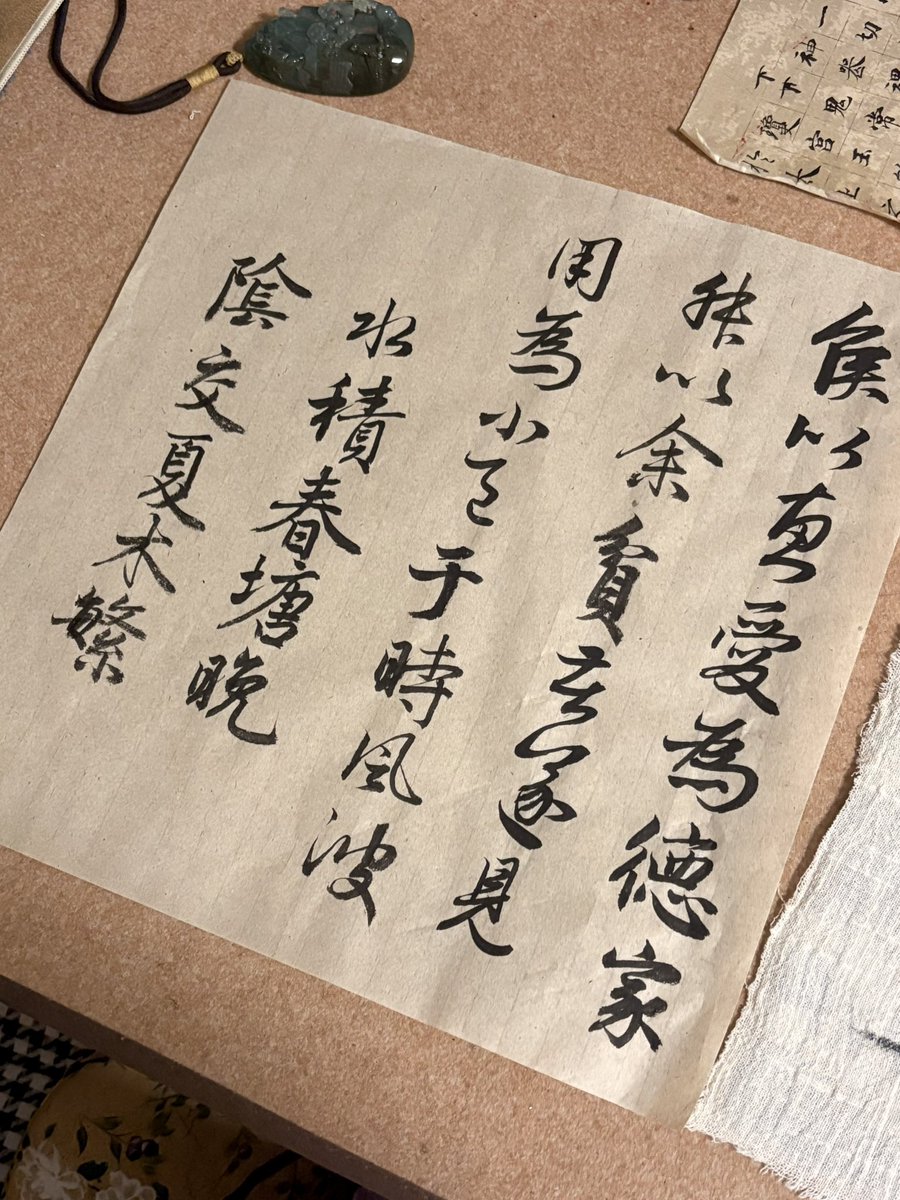 侯以惠愛為德家
叔以余貧苦遂見
用為小邑于時風波
水積春塘晚
陰交夏木繁